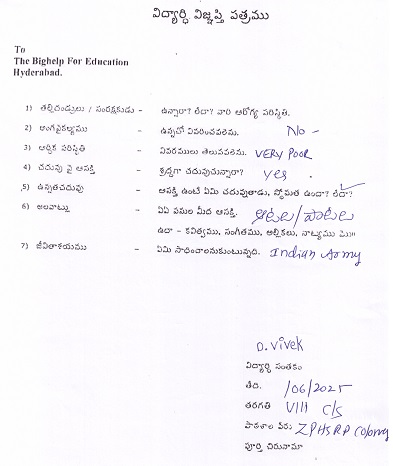 విద్యార్ధి విజ్ఞప్తి పత్రము
To
The Bighelp For Education
Hyderabad.
1) తల్లిదండ్రులు / సంరక్షకుడు - ఉన్నారా? లేదా? వారి ఆరోగ్య పరిస్థితి.
2) అంగవైకల్యము - ఉన్నచో వివరించవలెను. No -
3) ఆర్ధిక పరిస్థితి - వివరములు తెలుపవలెను. VERY POOR
4) చదువు పై ఆసక్తి - శ్రద్ధగా చదువుచున్నారా? Yes.
5) ఉన్నతచదువు - ఆసక్తి ఉంటే ఏమి చదువుతాడు, స్థోమత ఉందా? లేదా? ✓
6) అలవాట్లు - ఏఏ పనుల మీద ఆసక్తి. ఆటలు/పాటలు
ఉదా - కవిత్వము, సంగీతము, అల్లికలు, నాట్యము మొ॥
7) జీవితాశయము - ఏమి సాధించాలనుకుంటున్నది. Indian Army
D. Vivek
విద్యార్ధి సంతకం
తేది. /06/2025
తరగతి VIII C/S
పాఠశాల పేరు ZPHS R P Colony
పూర్తి చిరునామా